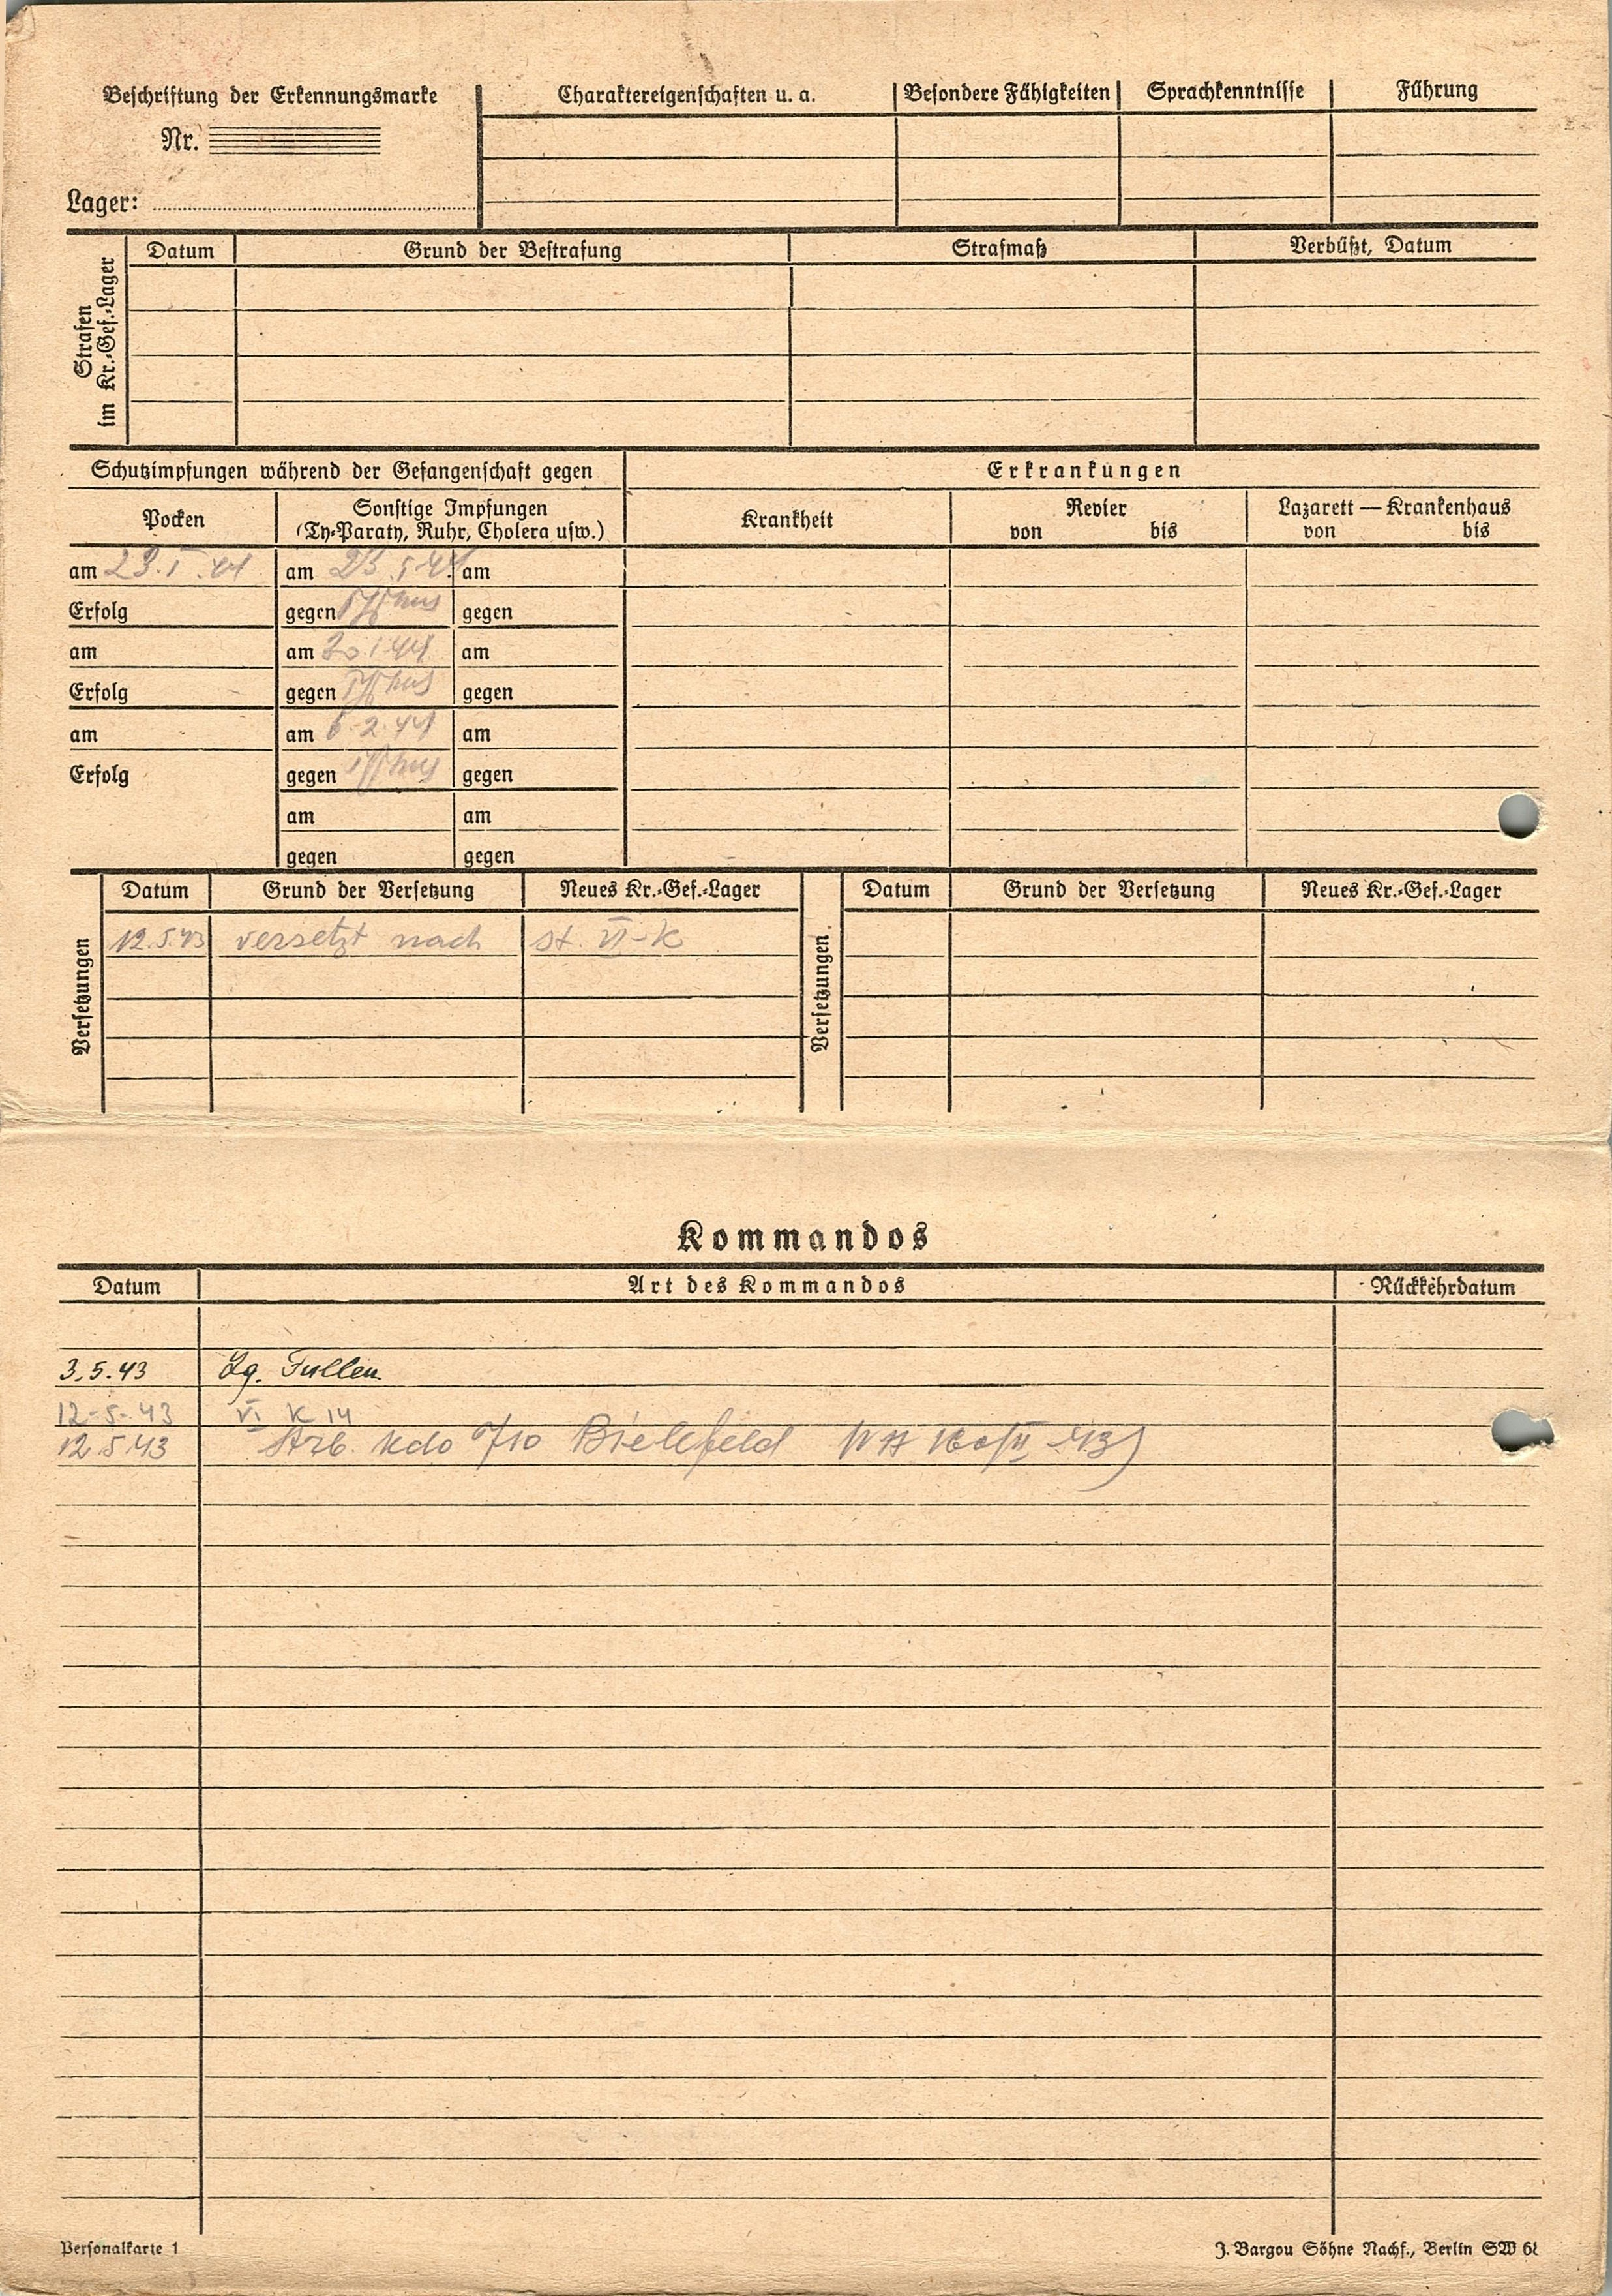 Beschriftung der Erkennungsmarke
Nr.
Lager:
Charaktereigenschaften u. a. Besondere Fähigkeiten Sprachkenntnisse Führung
Strafen im Kr.-Gef.-Lager
Datum Grund der Bestrafung Strafmaß Verbüßt, Datum
Schutzimpfungen während der Gefangenschaft gegen Erkrankungen
Pocken Sonstige Impfungen (Ty-Paraty, Ruhr, Cholera usw.) Krankheit Revier von bis Lazarett — Krankenhaus von bis
am am am
Erfolg gegen Typhus gegen
am am am
Erfolg gegen Typhus gegen
am am 6.2.44 am
Erfolg gegen Typhus gegen
am am
gegen gegen
Versetzungen
Datum Grund der Versetzung Neues Kr.-Gef.-Lager
12.5.43 versetzt nach st. VI-K
Versetzungen
Datum Grund der Versetzung Neues Kr.-Gef.-Lager
Kommandos
Datum Art des Kommandos Rückkehrdatum
3.5.43 Lg. Fullen
12-5-43 VI K 14
12.5.43 Arb. Kdo 710 Bielefeld
Personalkarte 1
J. Bargou Söhne Nachf., Berlin SW